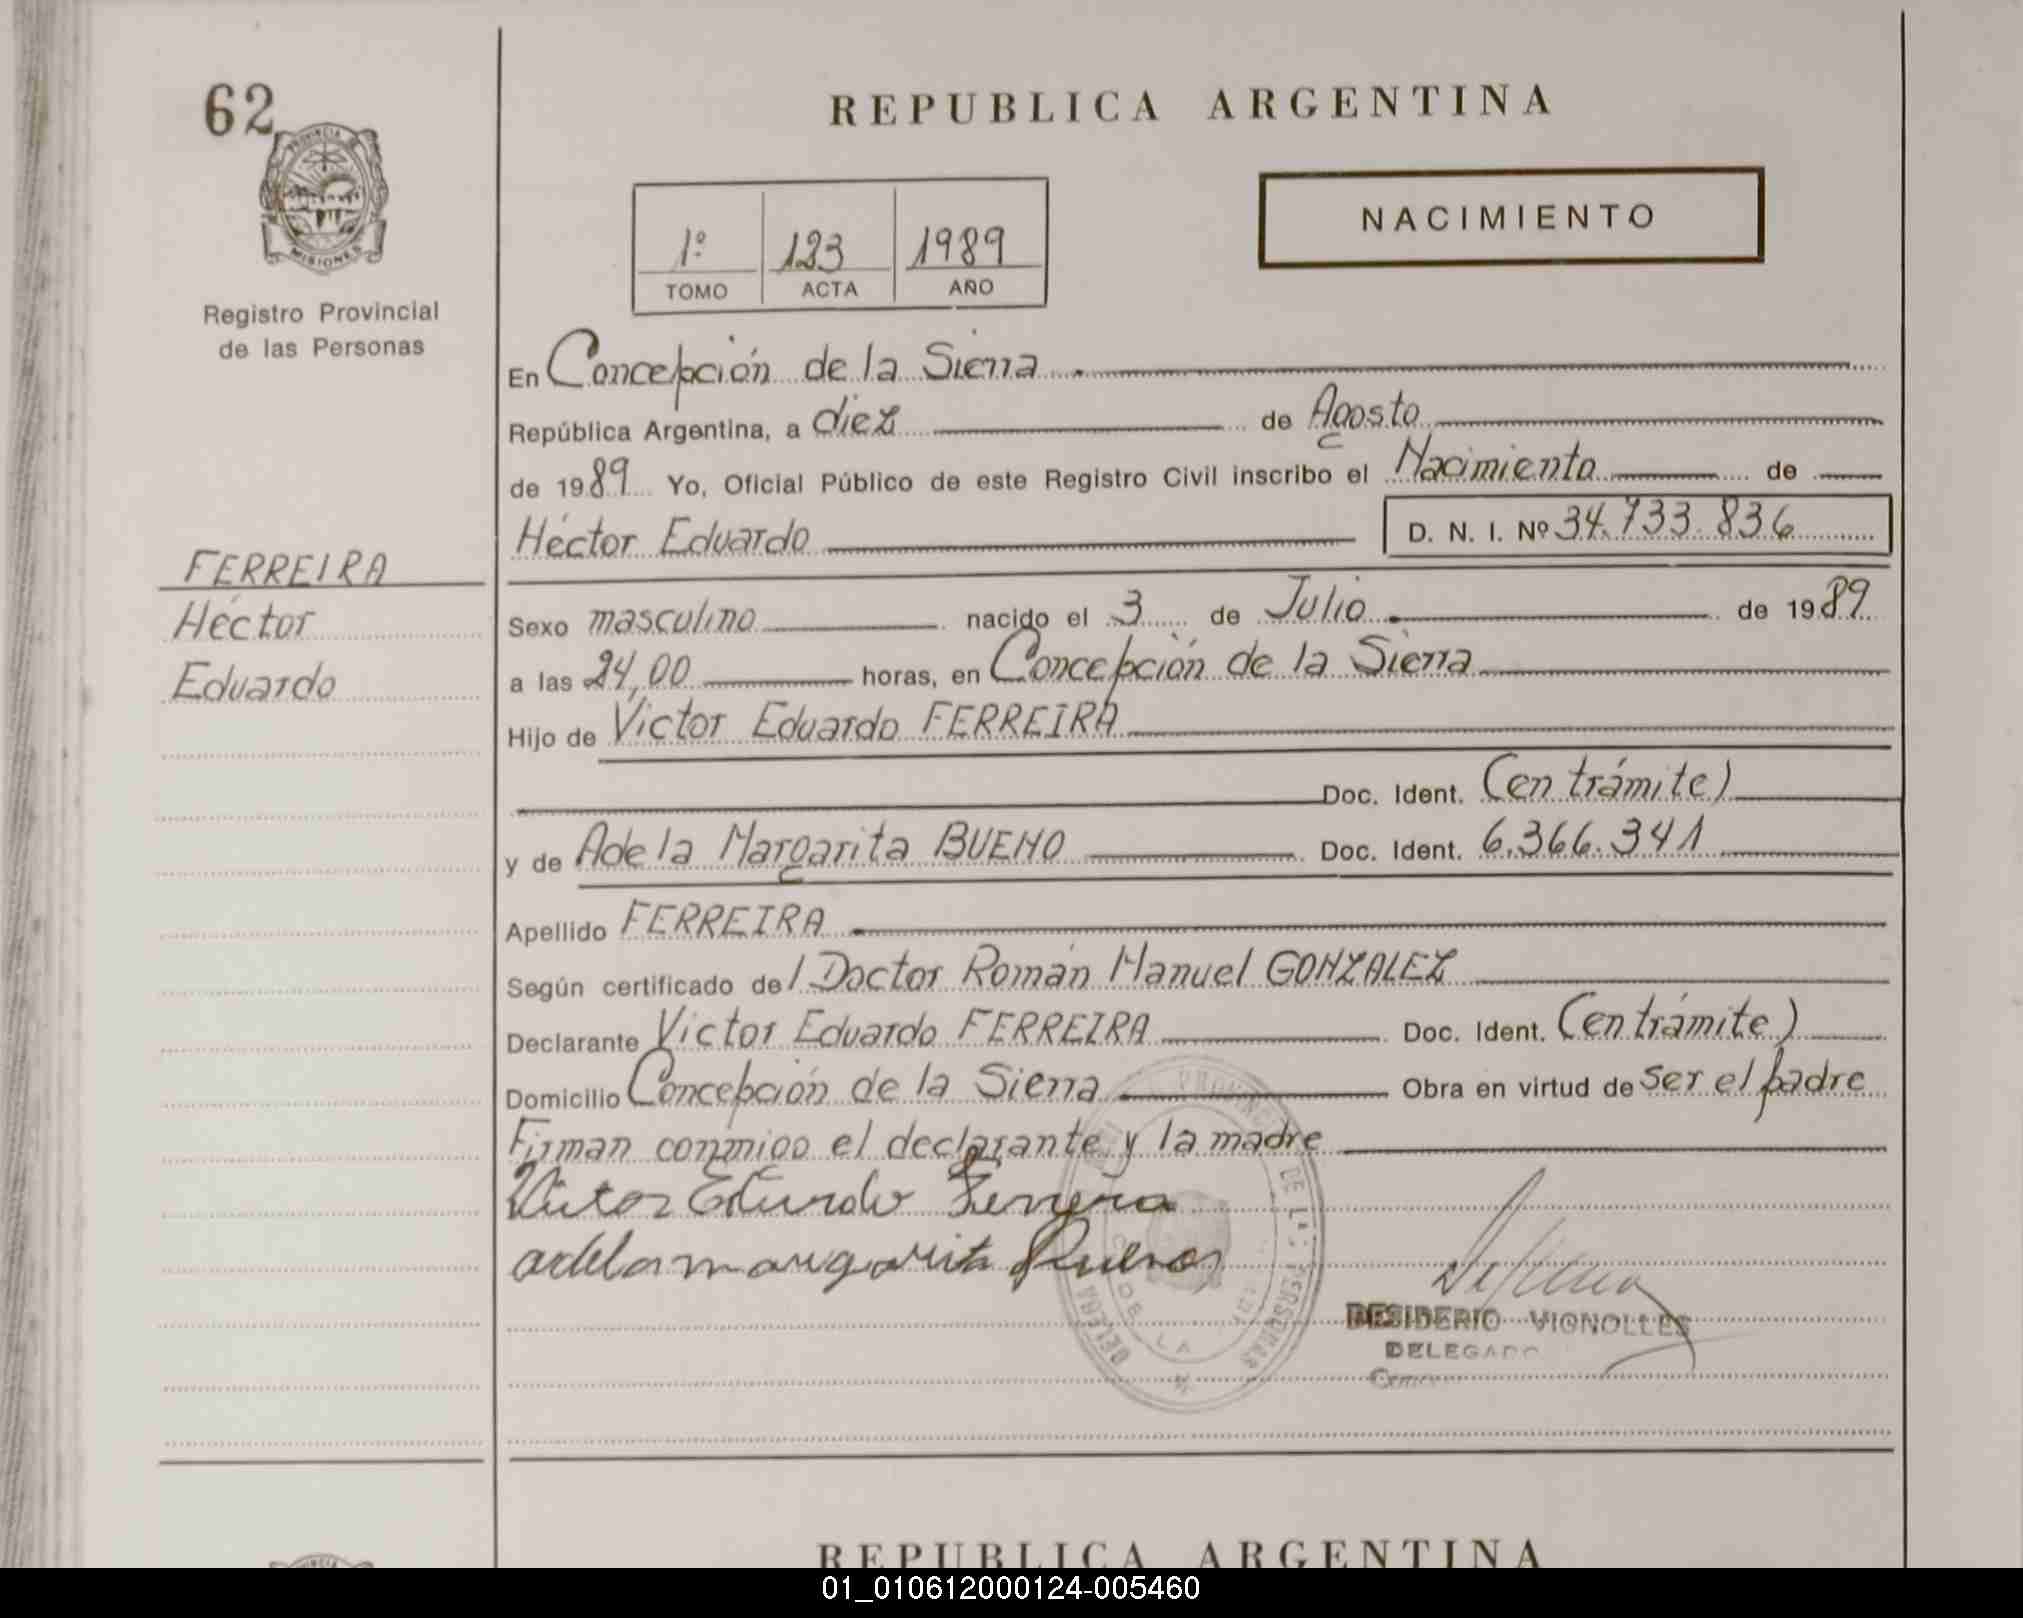 62
PROVINCIA DE
MISIONES
Registro Provincial
de las Personas
REPUBLICA ARGENTINA
1º 123 1989
TOMO ACTA AÑO
NACIMIENTO
En Concepción de la Sierra
República Argentina, a diez de Agosto
de 1989 Yo, Oficial Público de este Registro Civil inscribo el Nacimiento de
Héctor Eduardo D. N. I. Nº 34.733.836
FERREIRA
Héctor
Eduardo
Sexo masculino nacido el 3 de Julio de 1989
a las 24,00 horas, en Concepción de la Sierra
Hijo de Víctor Eduardo FERREIRA
Doc. Ident. (en trámite)
y de Adela Margarita BUENO Doc. Ident. 6.366.341
Apellido FERREIRA
Según certificado del Doctor Román Manuel GONZALEZ
Declarante Víctor Eduardo FERREIRA Doc. Ident. (en trámite)
Domicilio Concepción de la Sierra Obra en virtud de ser el padre
Firman conmigo el declarante y la madre
Victor Eduardo Ferreira
adela margarita Bueno
DESIDERIO VIGNOLLES
DELEGADO
REPUBLICA ARGENTINA
01_010612000124-005460